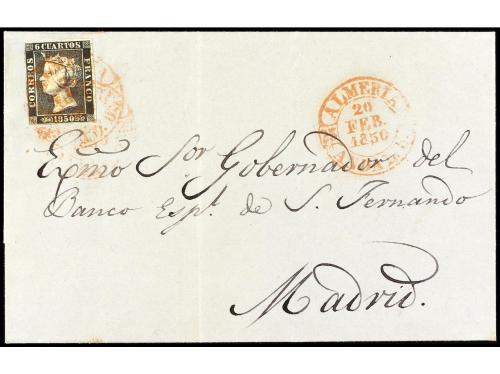 6 CUARTOS
CORREOS
FRANCO
1850
ALMERIA
20
FEB.
1850
Exmo Sor Gobernador del
Banco Espl. de S. Fernando
Madrid.